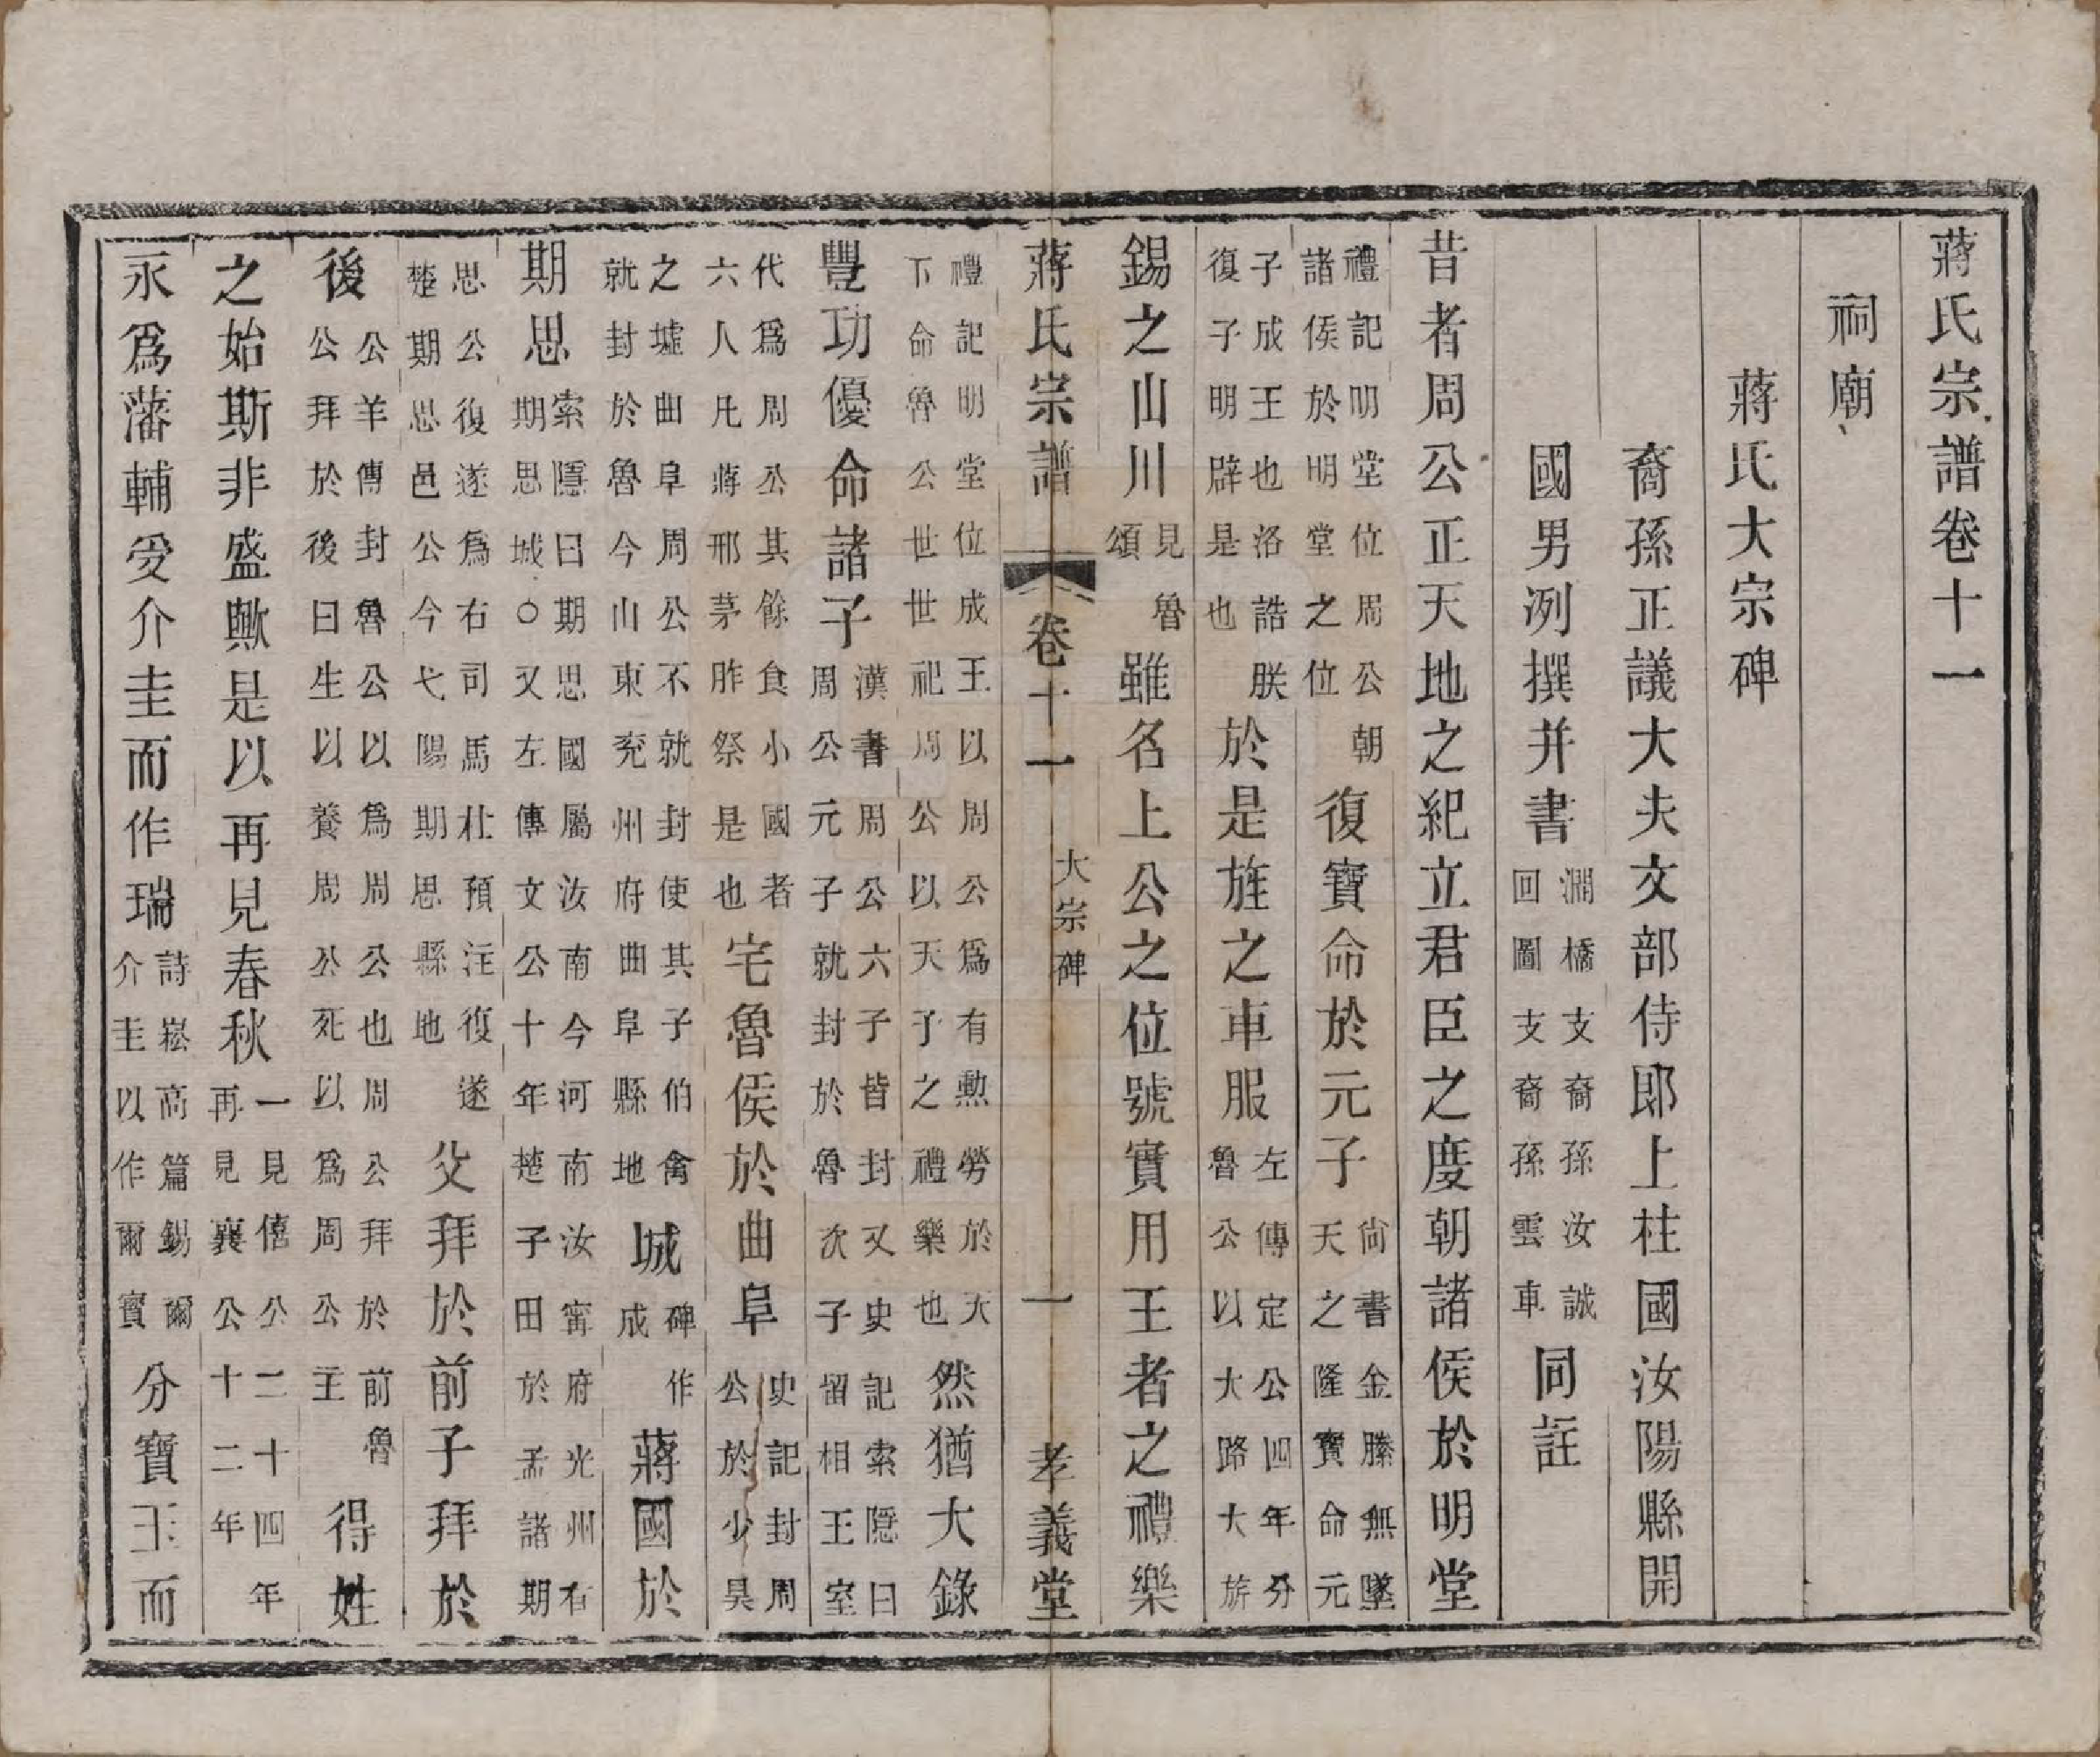 蔣氏宗譜卷十一
祠廟
蔣氏大宗碑
裔孫正議大夫文部侍郎上柱國汝陽縣開
國男洌撰并書 澗橋支裔孫汝誠 回圖支裔孫雲車 同註
昔者周公正天地之紀立君臣之度朝諸侯於明堂
禮記明堂位周公朝 諸侯於明堂之位 復寶命於元子 尙書金縢無墜 天之隆寶命元
子成王也洛誥朕 復子明辟是也 於是旌之車服 左傳定公四年分 魯公以大路大旂
錫之山川 見魯 頌 雖名上公之位號實用王者之禮樂
蔣氏宗譜 卷十一 大宗碑 一 孝義堂
禮記明堂位成王以周公爲有勲勞於天 下命魯公世世祀周公以天子之禮樂也 然猶大錄
豐功優命諸子 漢書周公六子皆封又史記索隱曰 周公元子就封於魯次子留相王室
代爲周公其餘食小國者 六人凡蔣邢茅胙祭是也 宅魯侯於曲阜 史記封周 公於少昊
之墟曲阜周公不就封使其子伯禽 就封於魯今山東兖州府曲阜縣地 城 碑作 成 蔣國於
期思 索隱曰期思國屬汝南今河南汝甯府光州有 期思城○又左傳文公十年楚子田於孟諸期
思公復遂爲右司馬杜預注復遂 楚期思邑公今弋陽期思縣地 父拜於前子拜於
後 公羊傳封魯公以爲周公也周公拜於前魯 公拜於後曰生以養周公死以爲周公主 得姓
之始斯非盛歟是以再見春秋 一見僖公二十四年 再見襄公十二年
永爲藩輔受介圭而作瑞 詩崧高篇錫爾 介圭以作爾寳 分寶玉而